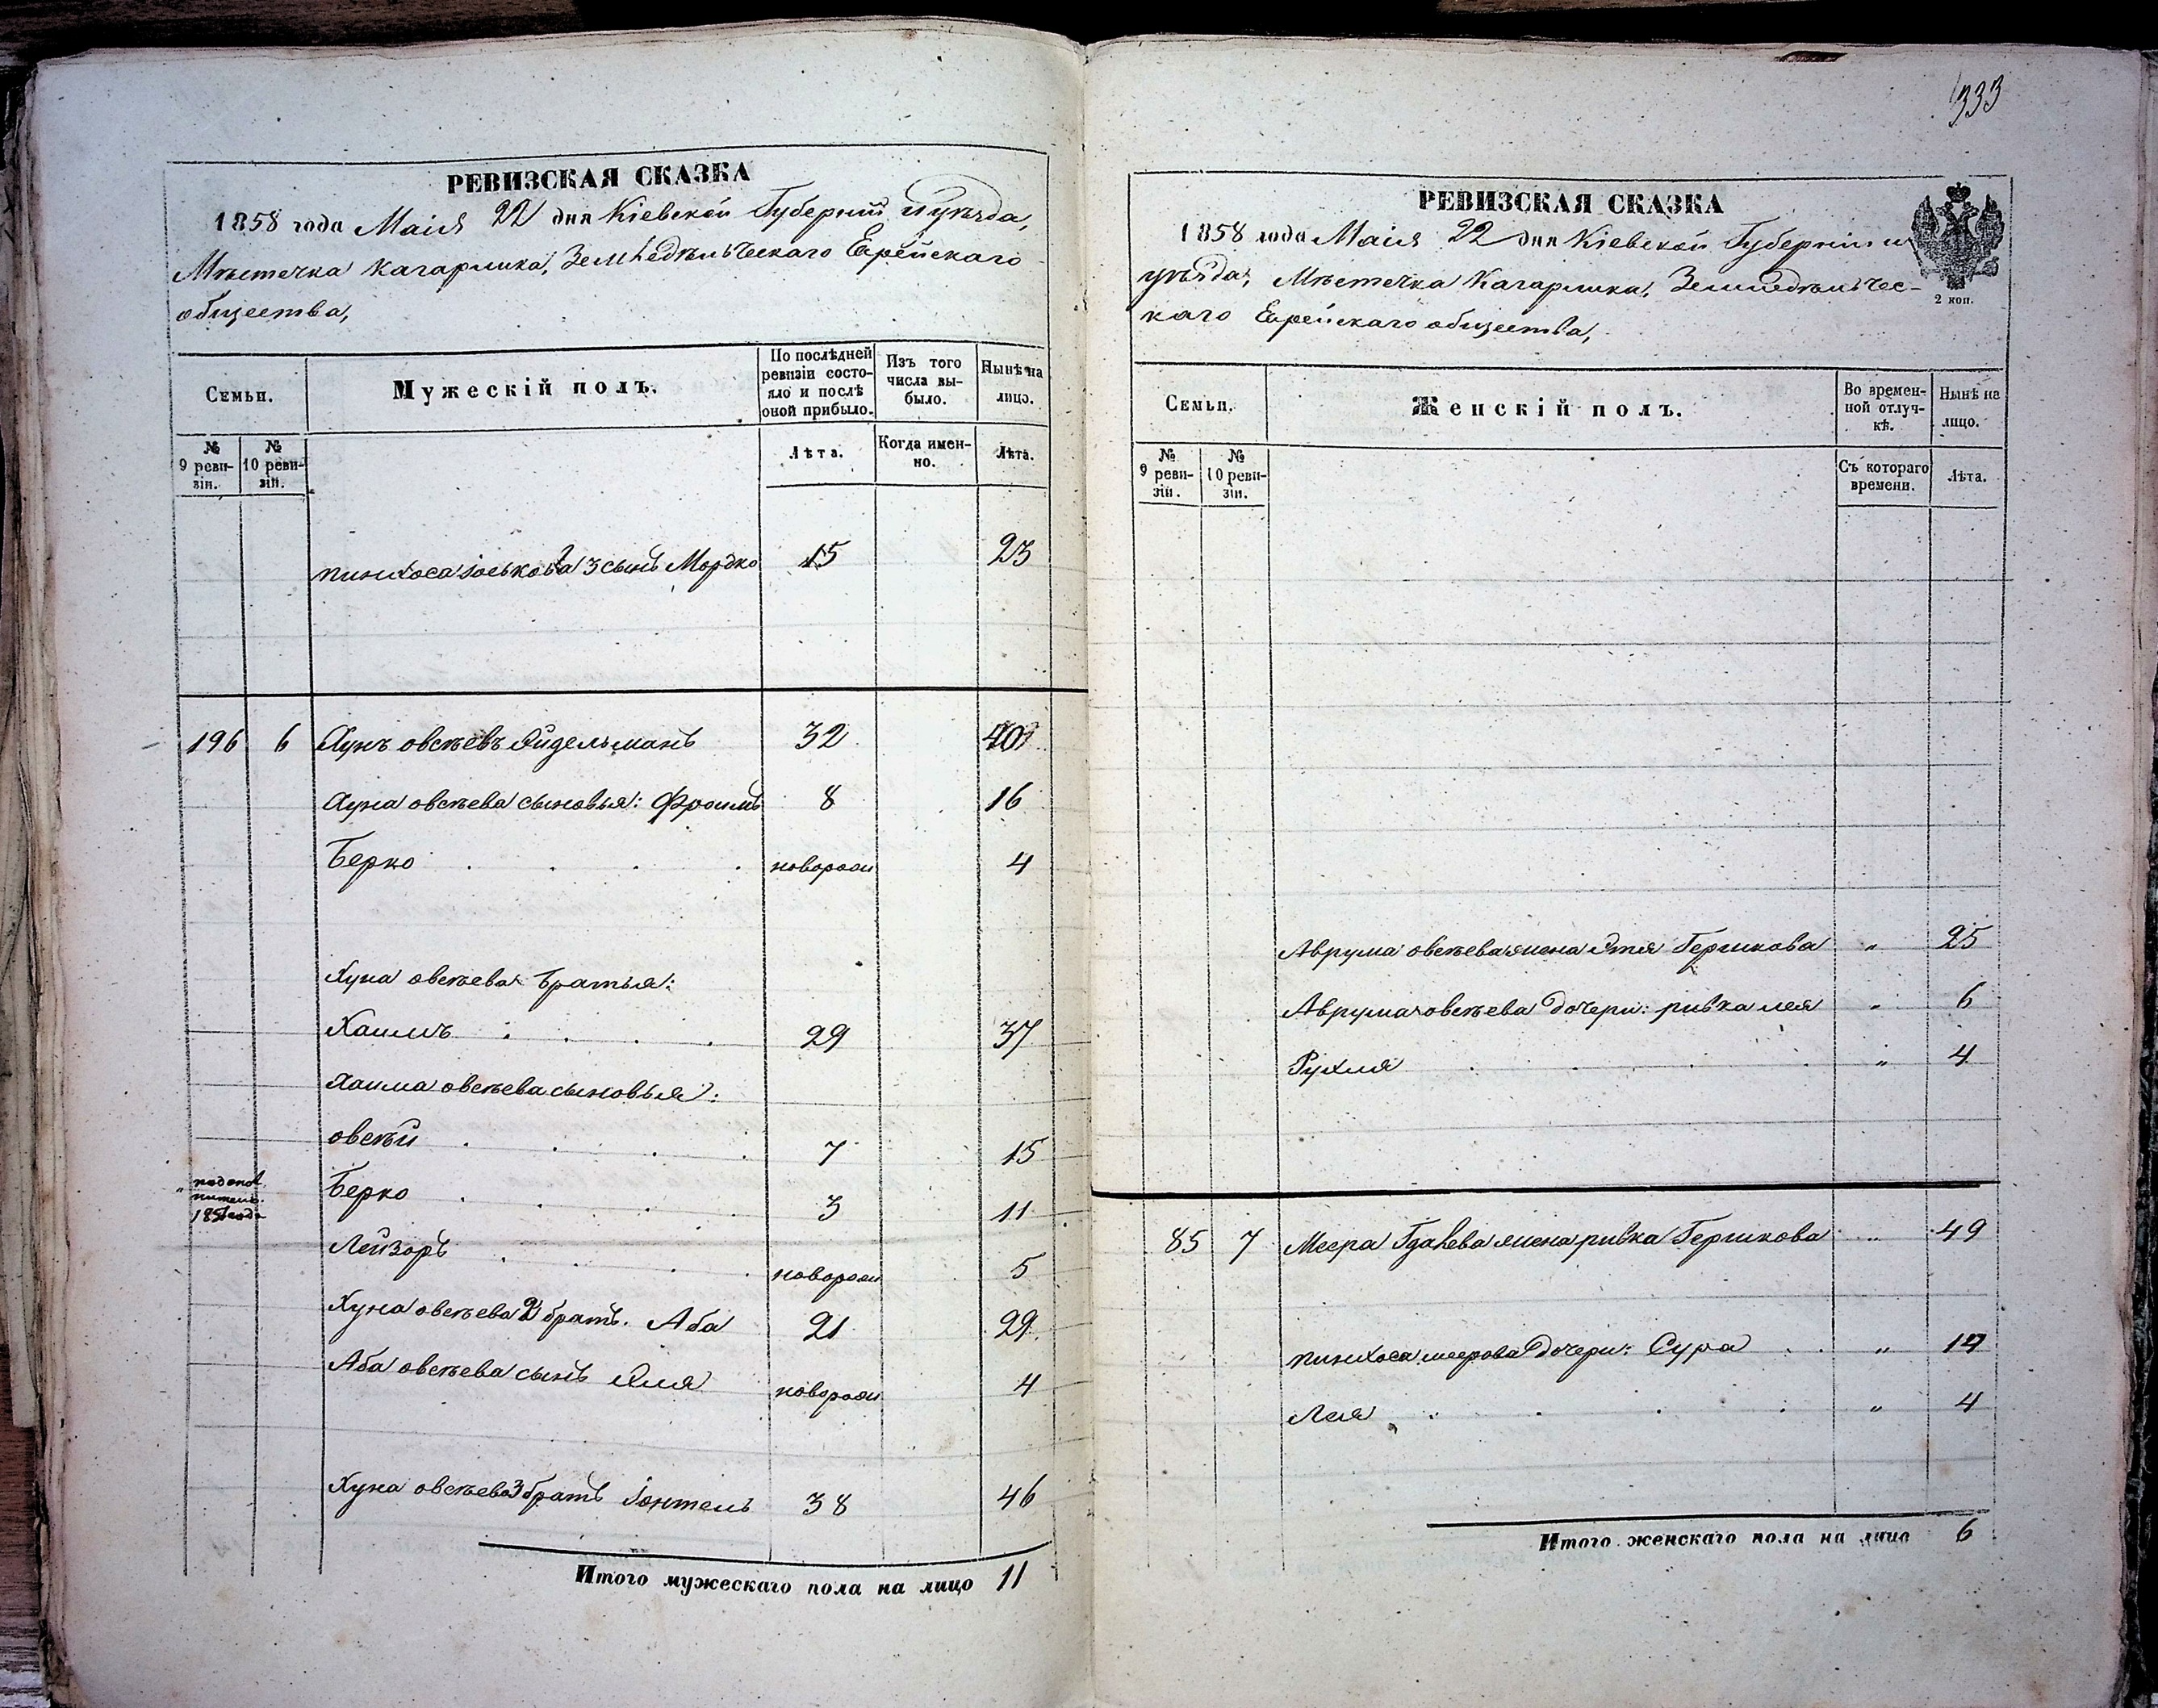 РЕВИЗСКАЯ СКАЗКА
1858 года Маія 22 дня Кіевской Губерніи и уѣзда,
Мѣстечка Кагарлика, Земледѣльческаго Еврейскаго
общества,
Семьи.
Мужескій полъ.
По послѣдней ревизіи состояло и послѣ оной прибыло.
Изъ того числа выбыло.
Нынѣ на лицо.
№ 9 ревизіи.
№ 10 ревизіи.
Лѣта.
Когда именно.
Лѣта.
Пинхоса Іоськова 3 сынъ Мордко 15 23
196 6 Хунъ овсѣевъ Эйдельманъ 32 40
Хуна овсѣева сыновья: Фроимъ 8 16
Берко новорож 4
Хуна овсѣева братья:
Хаимъ 29 37
Хаима овсѣева сыновья:
овсѣй 7 15
Берко 3 11
Лейзоръ новорож 5
Хуна овсѣева 2 братъ. Аба 21 29
Аба овсѣева сынъ Эля новорож 4
Хуна овсѣева 3 братъ Іонтель 38 46
Итого мужескаго пола на лицо 11
333
РЕВИЗСКАЯ СКАЗКА
1858 года Маія 22 дня Кіевской Губерніи и
уѣзда, Мѣстечка Кагарлика, Земледѣльчес-
каго Еврейскаго общества,
2 коп.
Семьи.
Женскій полъ.
Во временной отлучкѣ.
Нынѣ на лицо.
№ 9 ревизіи.
№ 10 ревизіи.
Съ котораго времени.
Лѣта.
Аврума овсѣева жена Этя Гершкова " 25
Аврума овсѣева дочери: ривка лея " 6
Рухля " 4
85 7 Меера жена ривка Гершкова " 49
Пинхоса меерова дочери: Сура "
Лея " 4
Итого женскаго пола на лицо 6